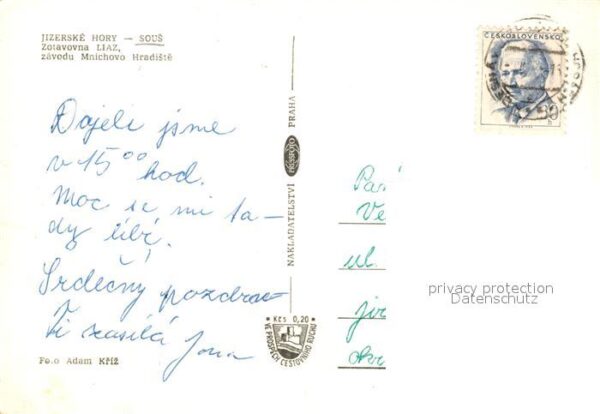 JIZERSKÉ HORY — SOUŠ
Zotavovna LIAZ,
závodu Mnichovo Hradiště
Dojeli jsme
v 15⁰⁰ hod.
Moc se mi ta-
dy líbí.
Srdečný pozdrav
Ti zasílá Jana
Foto Adam Kříž
NAKLADATELSTVÍ PRESSFOTO PRAHA
Kčs 0,20
VE PROSPĚCH CESTOVNÍHO RUCHU
ČESKOSLOVENSKO
50
h
Ve
ul.
privacy protection
Datenschutz